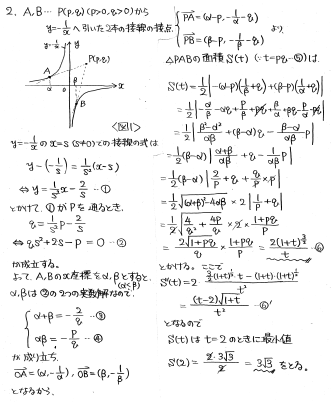 2. A, B … P(p,q) (p>0, q>0) から
y=-1/x へ引いた2本の接線の接点
y
P(p,q)
A
α
0
β
x
B
<図1>
y=-1/x の x=s (s≠0) での接線の式は
y-(-1/s)=1/s²(x-s)
⇔ y=1/s²x-2/s …①
とかけて、①がPを通るとき、
q=1/s²p-2/s
⇔ qs²+2s-p=0 …②
が成立する。
よって、A,Bのx座標をα,βとすると、
(α<β)
α,βは②の2つの実数解なので、
{ α+β=-2/q …③
αβ=-p/q …④
が成り立ち、
OA=(α,-1/α), OB=(β,-1/β)
となるから、
{ PA=(α-p,-1/α-q)
PB=(β-p,-1/β-q) より
△PABの面積 S(t) (∵t=pq …⑤)は、
S(t)=1/2|-(α-p)(1/β+q)+(β-p)(1/α+q)|
=1/2|-α/β-αq+p/β+pq+β/α+βq-p/α-pq|
=1/2|β²-α²/αβ+(β-α)q-β-α/αβ p|
=1/2(β-α)|α+β/αβ+q-1/αβ p|
=1/2(β-α)|2/p+q+q/p×p|
=1/2√(α+β)²-4αβ×2|1/p+q|
=1/2√4/q²+4p/q×2×1+pq/p
=2√1+pq/q×1+pq/p=2(1+t)^3/2/t …⑥
とかける。ここで
S'(t)=2·3/2(1+t)^1/2·t-(1+t)·(1+t)^1/2/t²
=(t-2)√1+t/t² …⑥'
となるので
S(t)は t=2 のときに最小値
S(2)=2·3√3/2=3√3 をとる。